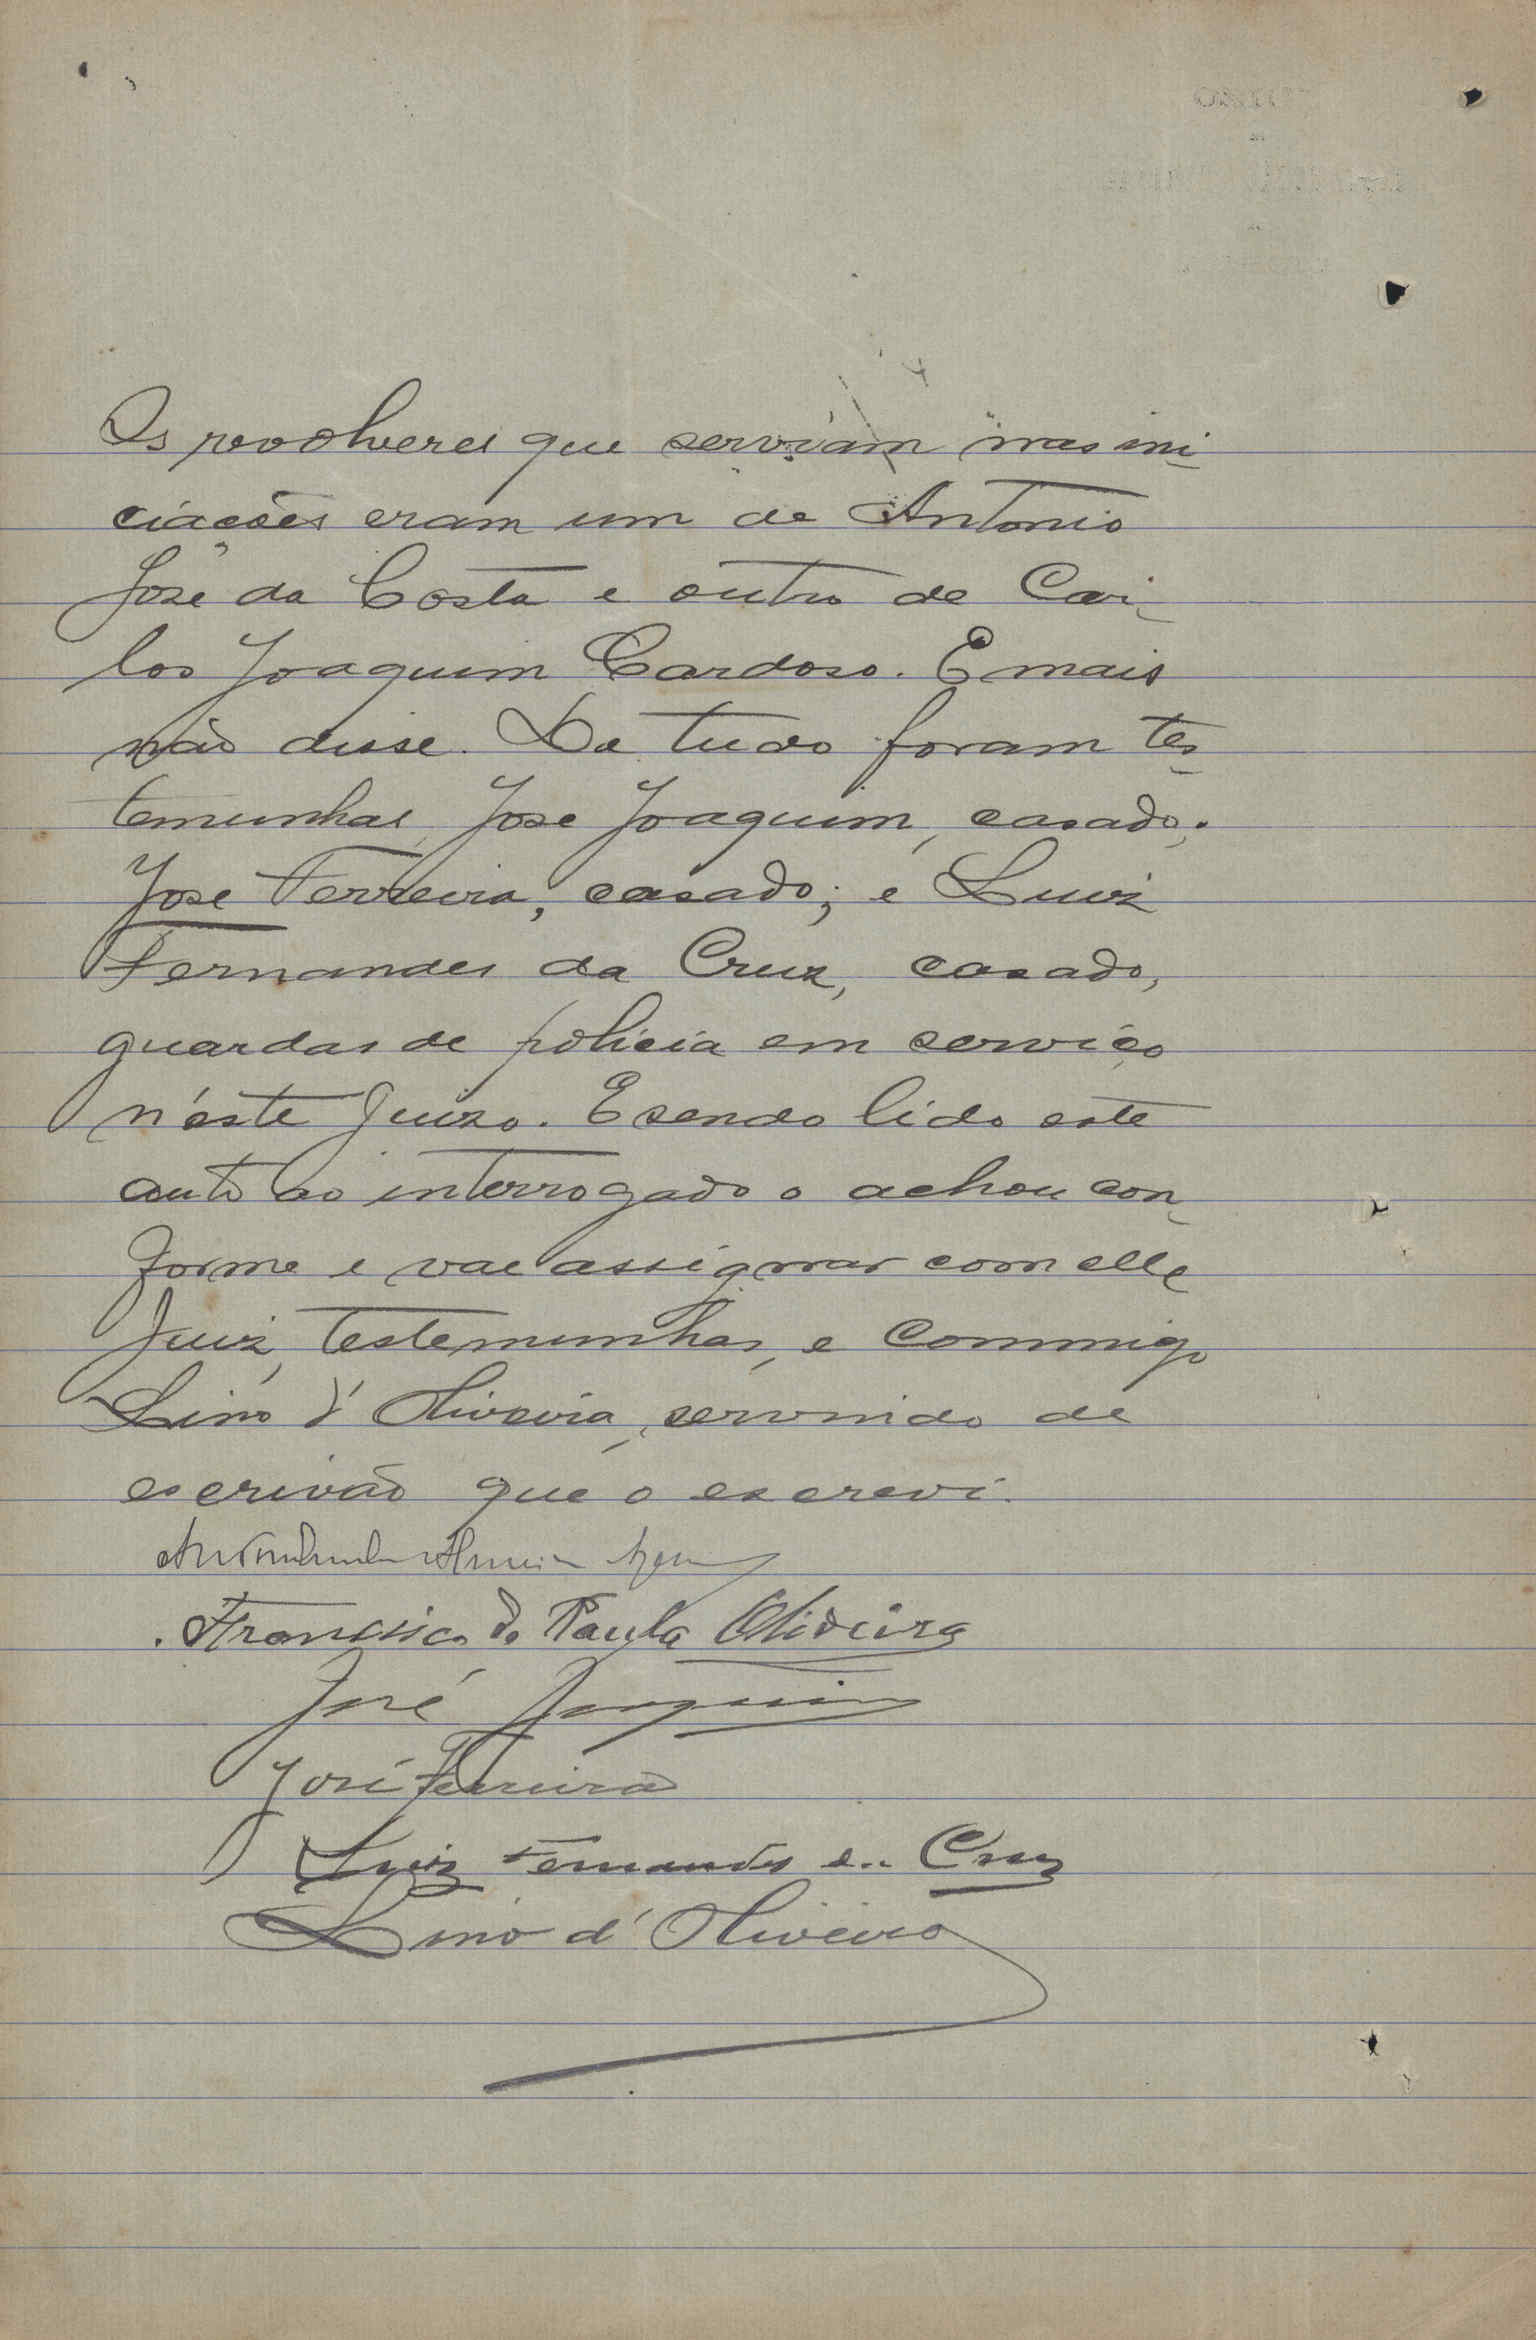 Os revolveres que serviam nas ini-
ciações eram um de Antonio
José da Costa e outro de Car-
los Joaquim Cardoso. E mais
não disse. De tudo foram tes-
temunhas, José Joaquim, casado;
José Ferreira, casado; e Luiz
Fernandes da Cruz, casado,
guardas de policia em serviço
n'este Juizo. E sendo lido este
auto ao interrogado o achou con-
forme e vae assignar com elle
Juiz, testemunhas, e commigo
Lino d'Oliveira, servindo de
escrivão que o escrevi.
Francisco de Paula Oliveira
José Joaquim
José Ferreira
Luiz Fernandes da Cruz
Lino d'Oliveira